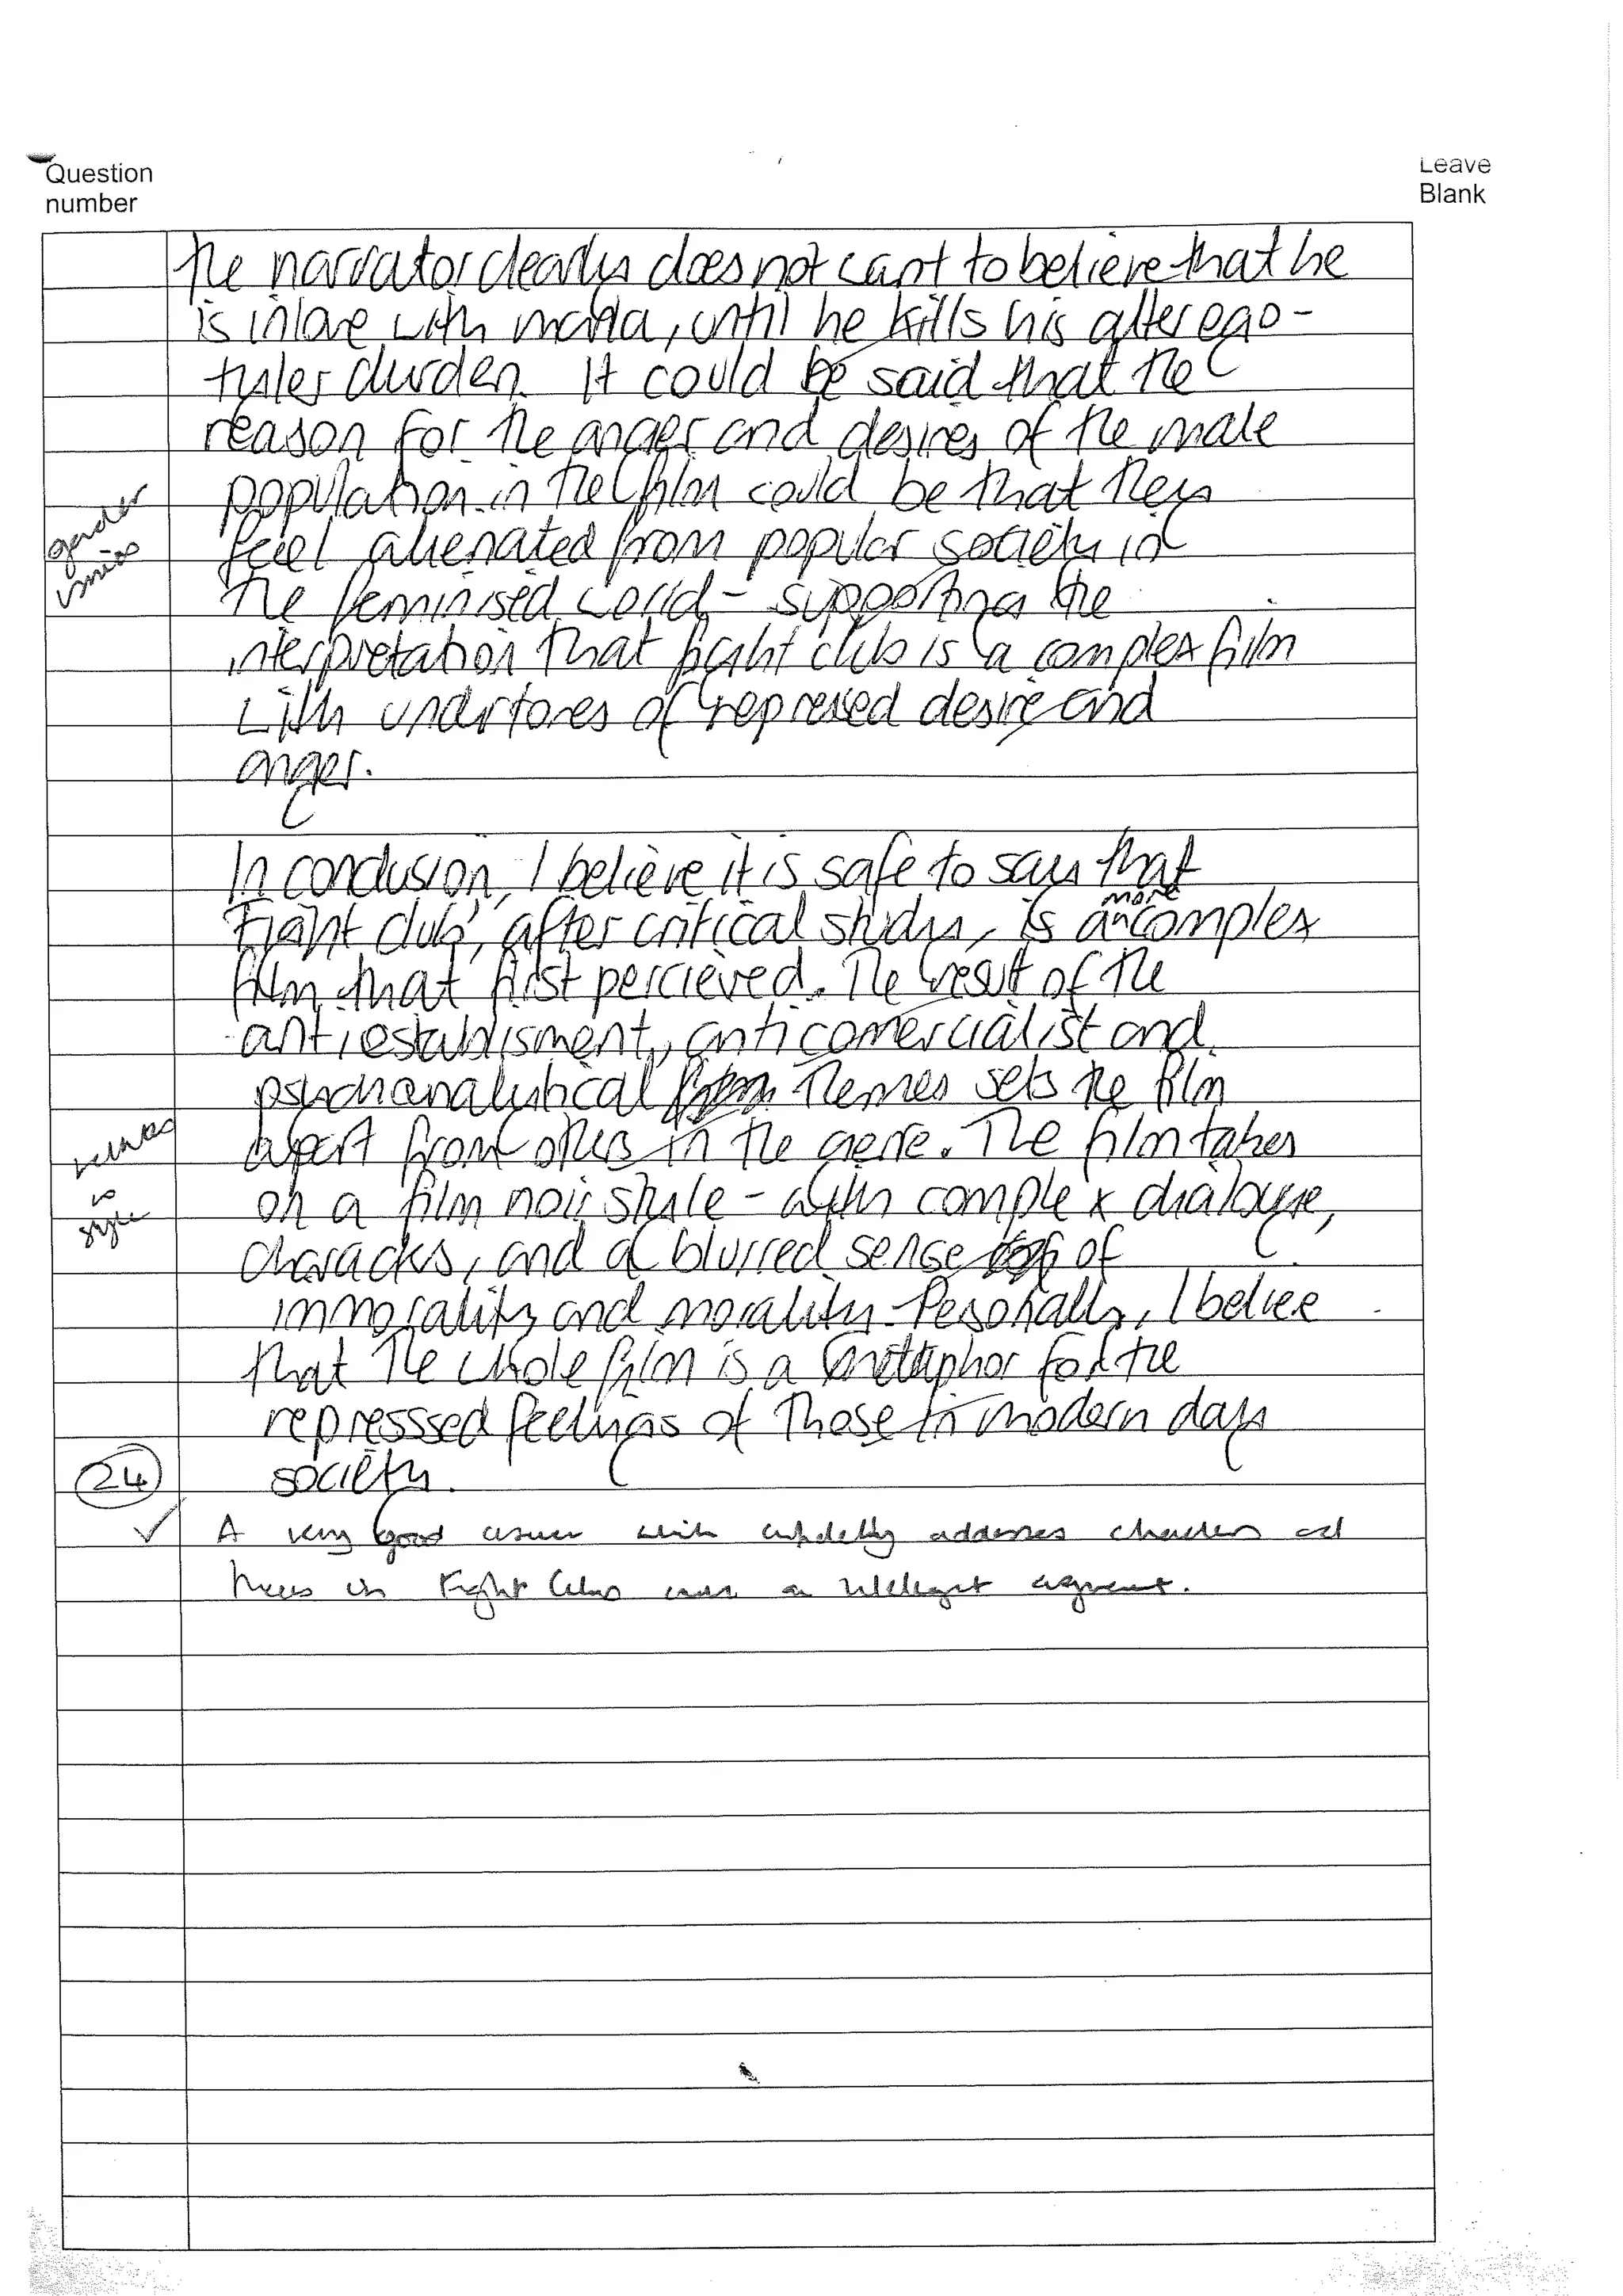 Question
number
Leave
Blank
The narrator clearly does not want to believe that he
is in love with marla, until he kills his alter ego -
tyler durden. It could be said that the
reason for the anger and desires of the male
population in the film could be that they
feel alienated from popular society in
the feminised world - supporting the
interpretation that fight club is a complex film
with undertones of repressed desire and
anger.
gender
In conclusion, I believe it is safe to say that
'Fight club', after critical study, is a more complex
film that first percieved. The result of the
anti establisment, anti comercialist and
psychanalytical themes sets the film
apart from others in the genre. The film takes
on a film noir style - with complex dialogue,
characters, and a blurred sense of
immorality and morality. Personally, I believe
that the whole film is a metaphor for the
repressed feelings of those in modern day
society.
style
24
A very good answer which addresses characters and
in Fight Club argument.